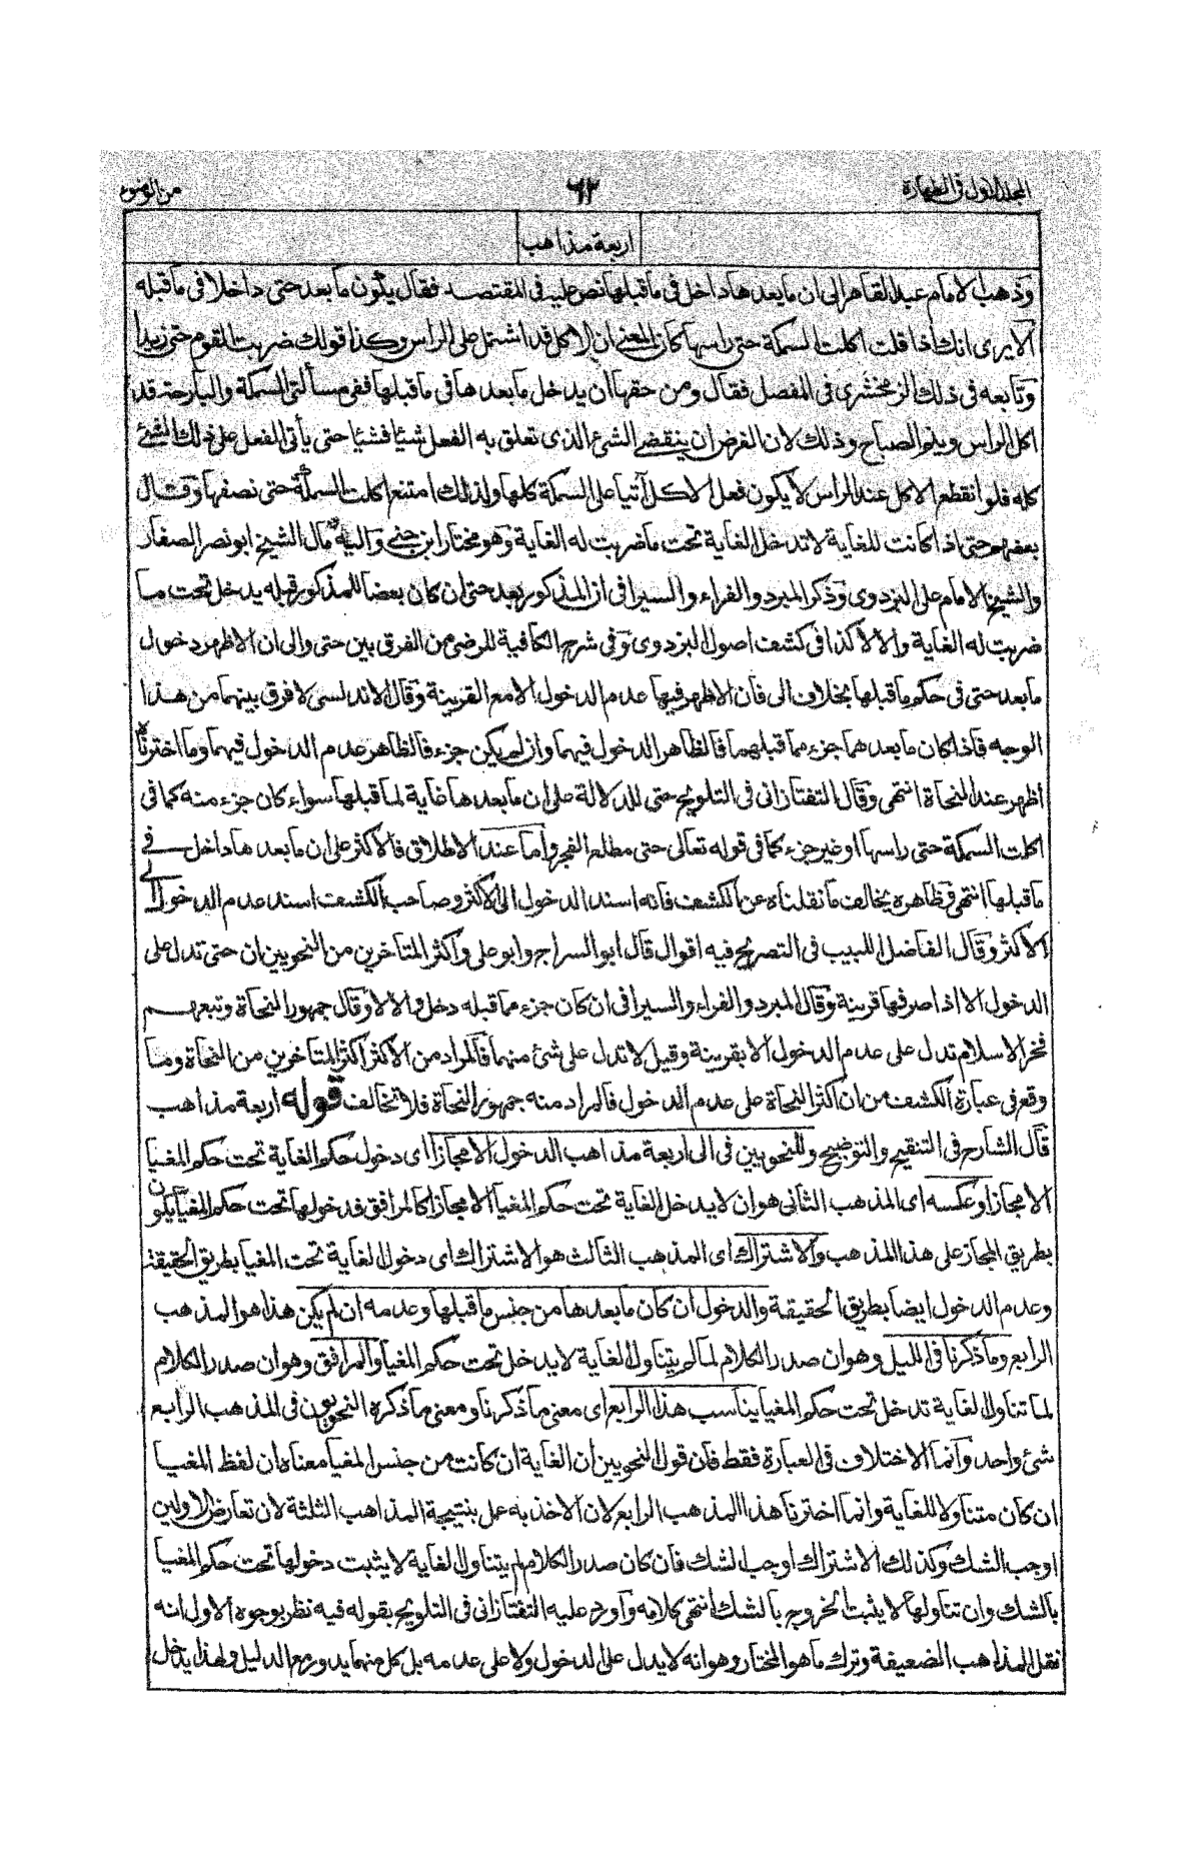 المجلد الاول فى الطهارة
٦٢
من الوضوء
اربعة مذاهب
وذهب الامام عبد القاهر الى ان ما بعدها داخل فى ما قبلها نص عليه فى المقتصد فقال يكون ما بعد حتى داخلا فى ما قبله
الا يرى انك اذا قلت اكلت السمكة حتى راسها كان المعنى ان الاكل قد اشتمل على الراس وكذا قولك ضربت القوم حتى زيدا
وتابعه فى ذلك الزمخشرى فى المفصل فقال ومن حقها ان يدخل ما بعدها فى ما قبلها ففى مسألتى السمكة والبارحة قد
اكل الراس ونيم الصباح وذلك لان الغرض ان ينقضى الشئ الذى تعلق به الفعل شيئا فشيئا حتى يأتى الفعل على ذلك الشئ
كله فلو انقطع الاكل عند الراس لا يكون فعل الاكل آتيا على السمكة كلها ولذلك امتنع اكلت السمكة حتى نصفها وقال
بعضهم حتى اذا كانت للغاية لا تدخل الغاية تحت ما ضربت له الغاية وهو مختار ابن جنى واليه مال الشيخ ابو نصر الصفار
والشيخ الامام على البزدوى وذكر المبرد والفراء والسيرافى ان المذكور بعد حتى ان كان بعضا للمذكور قبله يدخل تحت ما
ضربت له الغاية والا لا كذا فى كشف اصول البزدوى وفى شرح الكافية للرضى من الفرق بين حتى والى ان الاظهر دخول
ما بعد حتى فى حكم ما قبلها بخلاف الى فان الاظهر فيها عدم الدخول الا مع القرينة وقال الاندلسى لا فرق بينهما من هذا
الوجه فاذا كان ما بعدهما جزء مما قبلهما فالظاهر الدخول فيهما وان لم يكن جزء فالظاهر عدم الدخول فيهما وما اخترناه
اظهر عند النحاة انتهى وقال التفتازانى فى التلويح حتى للدلالة على ان ما بعدها غاية لما قبلها سواء كان جزء منه كما فى
اكلت السمكة حتى راسها او غير جزء كما فى قوله تعالى حتى مطلع الفجر واما عند الاطلاق فالاكثر على ان ما بعدها داخل فى
ما قبلها انتهى فظاهره يخالف ما نقلناه عن الكشف فانه اسند الدخول الى الاكثر وصاحب الكشف اسند عدم الدخول الى
الاكثر وقال الفاضل اللبيب فى التصريح فيه اقوال قال ابو السراج وابو على واكثر المتاخرين من النحويين ان حتى تدل على
الدخول الا اذا صرفها قرينة وقال المبرد والفراء والسيرافى ان كان جزء مما قبله دخل والا لا وقال جمهور النحاة وتبعهم
فخر الاسلام تدل على عدم الدخول الا بقرينة وقيل لا تدل على شئ منهما فالمراد من الاكثر اكثر المتاخرين من النحاة وما
وقع فى عبارة الكشف من ان اكثر النحاة على عدم الدخول فالمراد منه جمهور النحاة فلا تخالف قوله اربعة مذاهب
قال الشارح فى التنقيح والتوضيح وللنحويين فى الى اربعة مذاهب الدخول الا مجازا اى دخول حكم الغاية تحت حكم المغيا
الا مجازا وعكسه اى المذهب الثانى هو ان لا يدخل الغاية تحت حكم المغيا الا مجازا كالمرافق فدخولها تحت حكم المغيا يكون
بطريق المجاز على هذا المذهب والاشتراك اى المذهب الثالث هو الاشتراك اى دخول الغاية تحت المغيا بطريق الحقيقة
وعدم الدخول ايضا بطريق الحقيقة والدخول ان كان ما بعدها من جنس ما قبلها وعدمه ان لم يكن هذا هو المذهب
الرابع وما ذكرنا فى الليل وهو ان صدر الكلام لما لم يتناول الغاية لا يدخل تحت حكم المغيا والمرافق وهو ان صدر الكلام
لما تناول الغاية تدخل تحت حكم المغيا يناسب هذا الرابع اى معنى ما ذكرنا ومعنى ما ذكره النحويون فى المذهب الرابع
شئ واحد وانما الاختلاف فى العبارة فقط فان قول النحويين ان الغاية ان كانت من جنس المغيا معناه ان لفظ المغيا
ان كان متناولا للغاية وانما اخترنا هذا المذهب الرابع لان الاخذ به عمل بنتيجة المذاهب الثلثة لان تعارض الاولين
اوجب الشك وكذلك الاشتراك اوجب الشك فان كان صدر الكلام لم يتناول الغاية لا يثبت دخولها تحت حكم المغيا
بالشك وان تناولها لا يثبت الخروج بالشك انتهى كلامه واورد عليه التفتازانى فى التلويح بقوله فيه نظر بوجوه الاول انه
نقل المذاهب الضعيفة وترك ما هو المختار وهو انه لا يدل على الدخول ولا على عدمه بل كل منهما يدور مع الدليل ولهذا يدخل